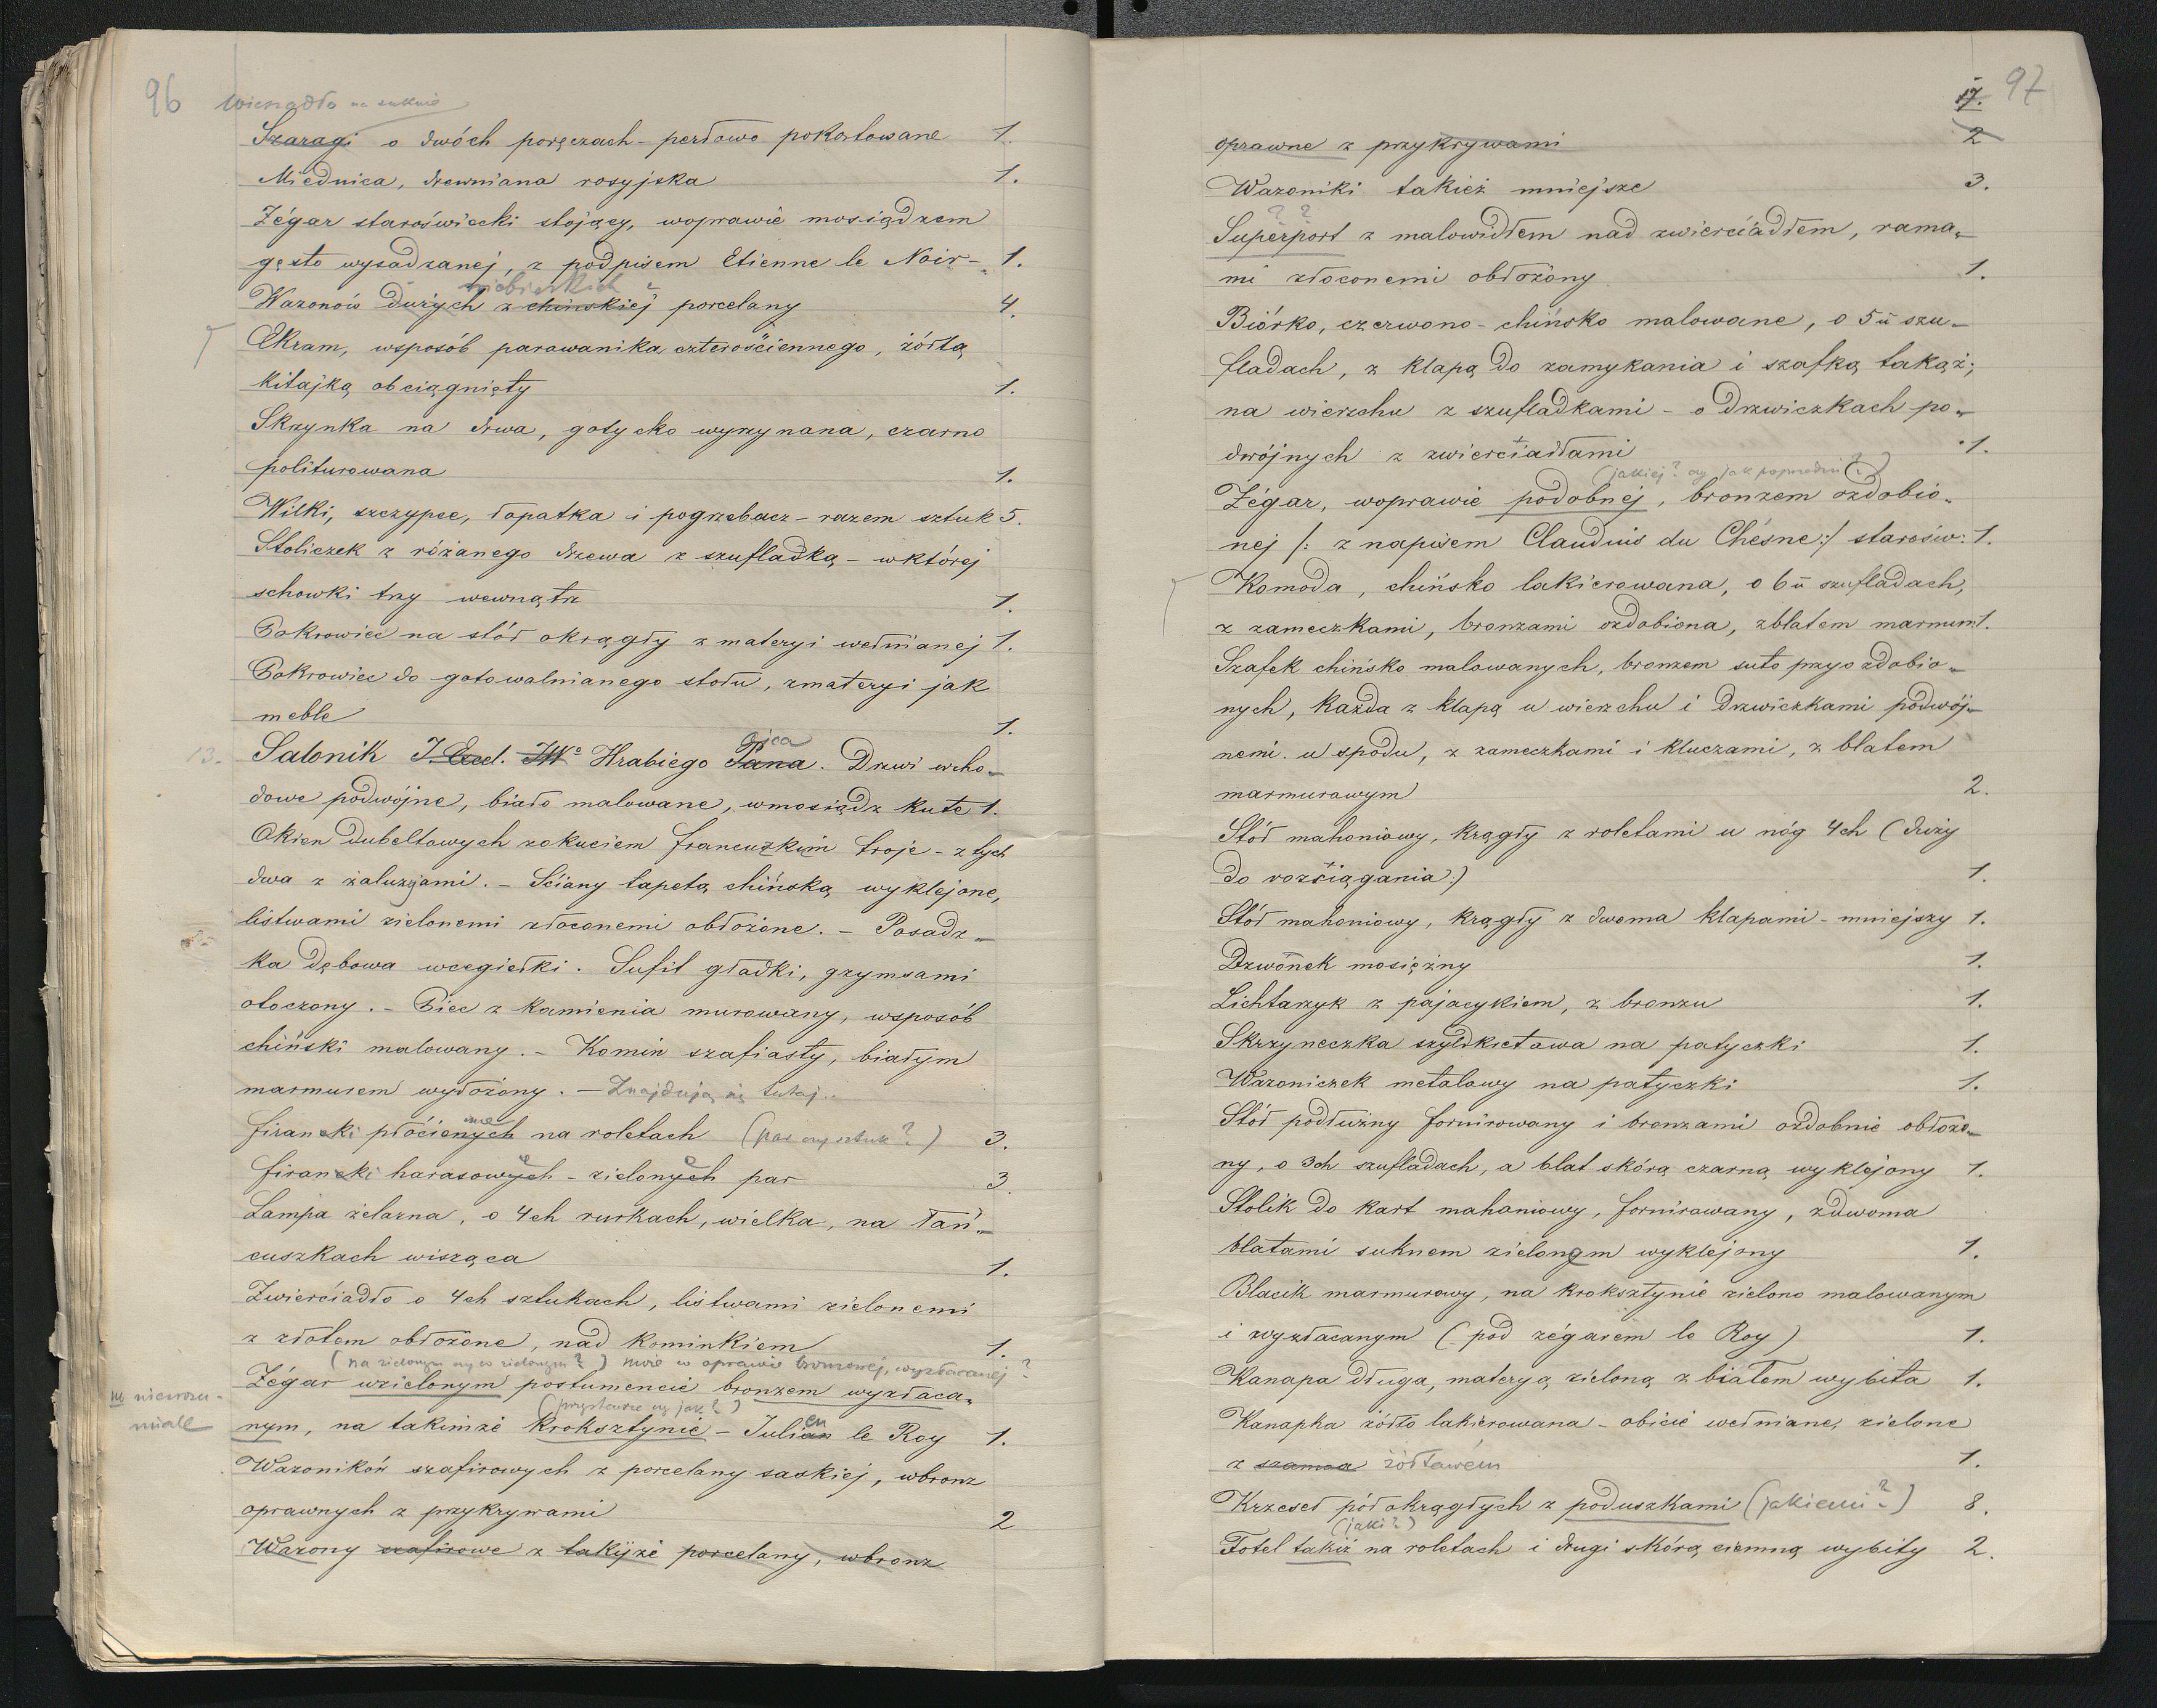 96
wieszadło na suknie
Szaragi o dwóch poręczach - perłowo pokostowane 1.
Miednica, drewniana rosyjska 1.
Zégar staroświecki stojący, woprawie mosiądzem
gęsto wysadzanej, z podpisem Etienne le Noir - 1.
niebieskich ?
Wazonów dużych z chinskiej porcelany 4.
Ekram, wsposób parawanika czterościennego, żółtą
kitajką obciągnięty 1.
Skrzynka na drwa, gotycko wyrzynana, czarno
politurowana 1.
Wilki, szczypce, łopatka i pogrzebacz - razem sztuk 5.
Stoliczek z różanego drzewa z szufladką - wktórej
schowki trzy wewnątrz 1.
Pokrowiec na stół okrągły z materyi wełnianej 1.
Pokrowiec do gotowalnianego stołu, zmateryi jak
meble 1.
ojca
13. Salonik J. Excel. JWo Hrabiego Pana. Drzwi wcho-
dowe podwójne, biało malowane, wmosiądz kute 1.
Okien dubeltowych zokuciem francuzkim troje - z tych
dwa z żaluzjami. - Ściany tapetą chińską wyklejone,
listwami zielonemi złoconemi obłożone. - Posadz-
ka dębowa wcegiełki. Sufit gładki, gzymsami
otoczony. - Piec z kamienia murowany, wsposób
chiński malowany. - Komin szafiasty, białym
marmurem wyłożony. - Znajdują się tutaj..
firanki płóciennych na roletach (par czy sztuk?) 3.
firanki harasowych - zielonych par 3.
Lampa żelazna, o 4ch rurkach, wielka, na łań-
cuszkach wisząca 1.
Zwierciadło o 4ch sztukach, listwami zielonemi
z złotem obłożone, nad kominkiem 1.
(na zielonym czy w zielonym?) może w oprawie bronzowej, wyzłacanej?
Zégar wzielonym postumencie bronzem wyzłaca-
niezrozu-
miałe
(przystawce czy jak?)
nym, na takimże kroksztynie - Julian le Roy 1.
en
Wazoników szafirowych z porcelany saskiej, wbronz
oprawnych z przykrywami 2
Wazony szafirowe z takijże porcelany, wbronz
97
17.
oprawne z przykrywami 2
Wazoniki takież mniejsze 3.
? ?
Superport z malowidłem nad zwierciadłem, rama-
mi złoconemi obłożony 1.
Biórko, czerwono-chińsko malowane, o 5u szu-
fladach, z klapą do zamykania i szafką takąż;
na wierzchu z szufladkami - o drzwiczkach po-
dwójnych z zwierciadłami 1.
(jakiej? czy jak poprzedni?)
Zégar, woprawie podobnej, bronzem ozdobio-
nej /: z napisem Claudius du Chésne :/ starośw: 1.
Komoda, chińsko lakierowana, o 6u szufladach,
z zameczkami, bronzami ozdobiona, zblatem marmur: 1.
Szafek chińsko malowanych, bronzem suto przyozdobio-
nych, każda z klapą u wierzchu i drzwiczkami podwój-
nemi. u spodu, z zameczkami i kluczami, z blatem
marmurowym 2.
Stół mahoniowy, krągły z roletami u nóg 4ch (duży
do rozciągania) 1.
Stół mahoniowy, krągły z dwoma klapami - mniejszy 1.
Dzwonek mosiężny 1.
Lichtarzyk z pajacykiem, z bronzu 1.
Skrzyneczka szyldkretowa na patyczki 1.
Wazoniczek metalowy na patyczki 1.
Stół podłużny fornirowany i bronzami ozdobnie obłożo-
ny, o 3ch szufladach, a blat skórą czarną wyklejony 1.
Stolik do kart mahoniowy, fornirowany, zdwoma
blatami suknem zielonem wyklejony 1.
Blacik marmurowy, na kroksztynie zielono malowanym
i wyzłacanym (pod zégarem le Roy) 1.
Kanapa długa, materyą zieloną z białem wybita 1.
Kanapka żółto lakierowana - obicie wełniane, zielone
z żółtawém 1.
Krzeseł półokrągłych z poduszkami (jakiemi?) 8.
(jaki?)
Fotel takiż na roletach i drugi skórą ciemną wybity 2.